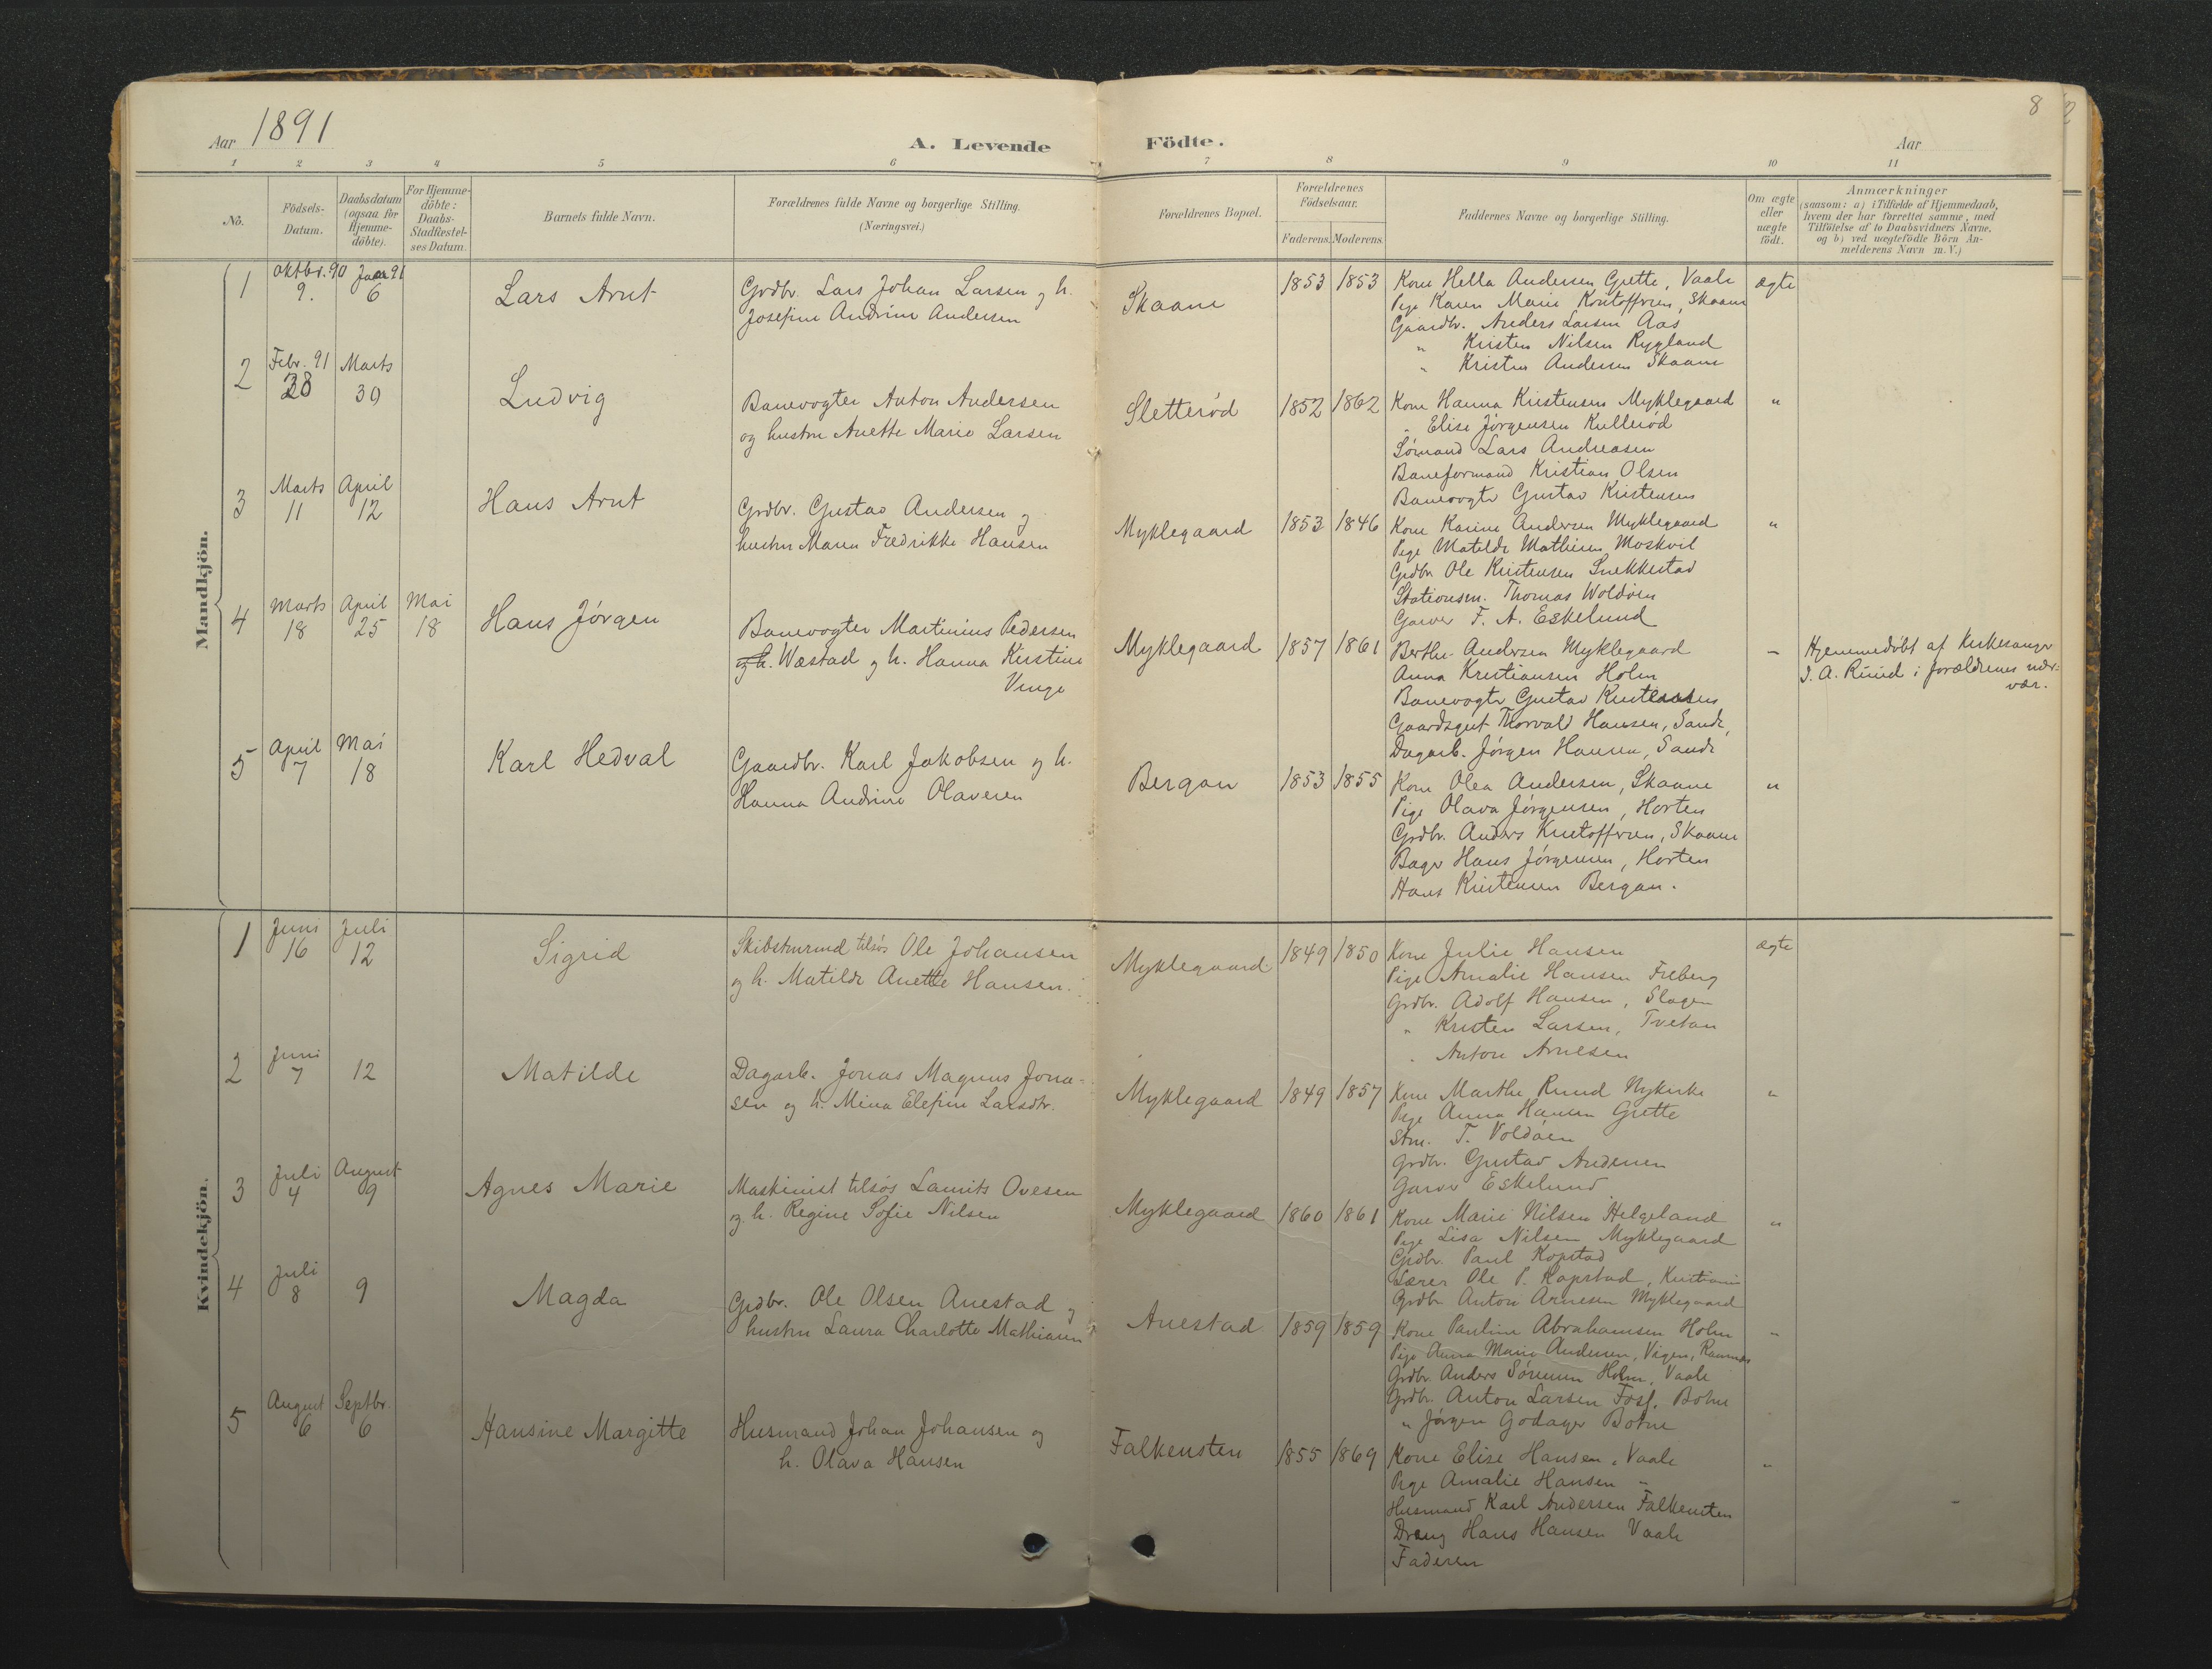 Aar 1891
A. Levende Födte.
Aar
8
1 2 3 4 5 6 7 8 9 10 11
No.
Födsels-Datum.
Daabsdatum (ogsaa for Hjemme-döbte).
For Hjemme-döbte: Daabs-Stadfæstel-ses Datum.
Barnets fulde Navn.
Forældrenes fulde Navne og borgerlige Stilling. (Næringsvei.)
Forældrenes Bopæl.
Forældrenes Födselsaar.
Faderens. Moderens.
Faddernes Navne og borgerlige Stilling.
Om ægte eller uægte födt.
Anmærkninger
(saasom: a) i Tilfælde af Hjemmedaab,
hvem der har forrettet samme, med
Tilföielse af to Daabsvidners Navne,
og b) ved uægtefödte Börn An-
melderens Navn m. V.)
Mandkjön.
1
Oktbr. 90 9.
Janr 91 6
Lars Arnt
Grdbr. Lars Johan Larsen og h.
Josefine Andrine Andersen
Skaane
1853 1853
Kone Hella Andersen Grette, Vaale
Pige Karen Marie Kristoffersen, Skaane
Gaardbr. Anders Larsen Aas
" Kristen Nilsen Rygland
" Kristen Andersen Skaane
ægte
2
Febr. 91 28
Marts 30
Ludvig
Banevogter Anton Andersen
og hustru Anette Marie Larsen
Sletterød
1852 1862
Kone Hanna Kristensen Myklegaard
" Elise Jørgensen Kullerød
Sömand Lars Andreasen
Baneformand Kristian Olsen
Banevogter Gustav Kristensen
"
3
Marts 11
April 12
Hans Arnt
Grdbr. Gustav Andersen og
hustru Maren Fredrikke Hansen
Myklegaard
1853 1846
Kone Karine Andersen Myklegaard
Pige Matilde Mathisen Moskvil
Grdbr Ole Kristensen Snekkestad
Stationsm. Thomas Woldöen
Garver F. A. Eskelund
"
4
Marts 18
April 25
Mai 18
Hans Jörgen
Banevogter Martinius Pedersen
og h. Wæstad og h. Hanna Kirstine
Venge
Myklegaard
1857 1861
Berthe Andersen Myklegaard
Anna Kristiansen Holm
Banevogter Gustav Kristensen
Gaardsgut Thorvald Hansen, Sande,
Dagarb. Jörgen Hansen, Sande
"
Hjemmedöbt af Kirkesanger
J. A. Ruud i forældrenes nær-
vær.
5
April 7
Mai 18
Karl Hedval
Gaardbr. Karl Jakobsen og h.
Hanna Andrine Olavesen
Bergan
1853 1855
Kone Olea Andersen, Skaane
Pige Olava Jörgensen, Horten
Grdbr. Anders Kristoffersen, Skaane
Bager Hans Jörgensen, Horten
Hans Kristensen Bergan.
"
Kvindekjön.
1
Juni 16
Juli 12
Sigrid
Skibstmrmd tilsös Ole Johansen
og h. Matilde Anette Hansen.
Myklegaard
1849 1850
Kone Julie Hansen
Pige Amalie Hansen Freberg
Grdbr. Adolf Hansen, Slagen
" Kristen Larsen, Tvetan
" Anton Arnesen
ægte
2
Juni 7
12
Matilde
Dagarb. Jonas Magnus Jona-
sen og h. Mina Elefine Larsdtr.
Myklegaard
1849 1857
Kone Marthe Ruud Nykirke
Pige Anna Hansen Grette
Stm. T. Voldöen
Grdbr. Gustav Andersen
Garver Eskelund
"
3
Juli 4
August 9
Agnes Marie
Maskinist tilsös Laurits Ovesen
og h. Regine Sofie Nilsen
Myklegaard
1860 1861
Kone Marie Nilsen Helgeland
Pige Lisa Nilsen Myklegaard
Grdbr. Paul Kopstad
Lærer Ole P. Kopstad, Kristiania
Grdbr Anton Arnesen Myklegaard
"
4
Juli 8
9
Magda
Grdbr. Ole Olsen Anestad og
hustru Laura Charlotte Mathiasen
Anestad
1859 1859
Kone Pauline Abrahamsen Holm
Pige Anna Marie Andersen, Vigen, Ramnæs
Grdbr. Anders Sörensen Holm, Vaale
Grdbr. Anton Larsen Fosf. Botne
" Jörgen Godager Botne
"
5
August 6
Septbr. 6
Hansine Margitte
Husmand Johan Johansen og
h. Olava Hansen
Falkensten
1855 1869
Kone Elise Hansen, Vaale
Pige Amalie Hansen "
Husmand Karl Andersen Falkensten
Dreng Hans Hansen Vaale
Faderen
"